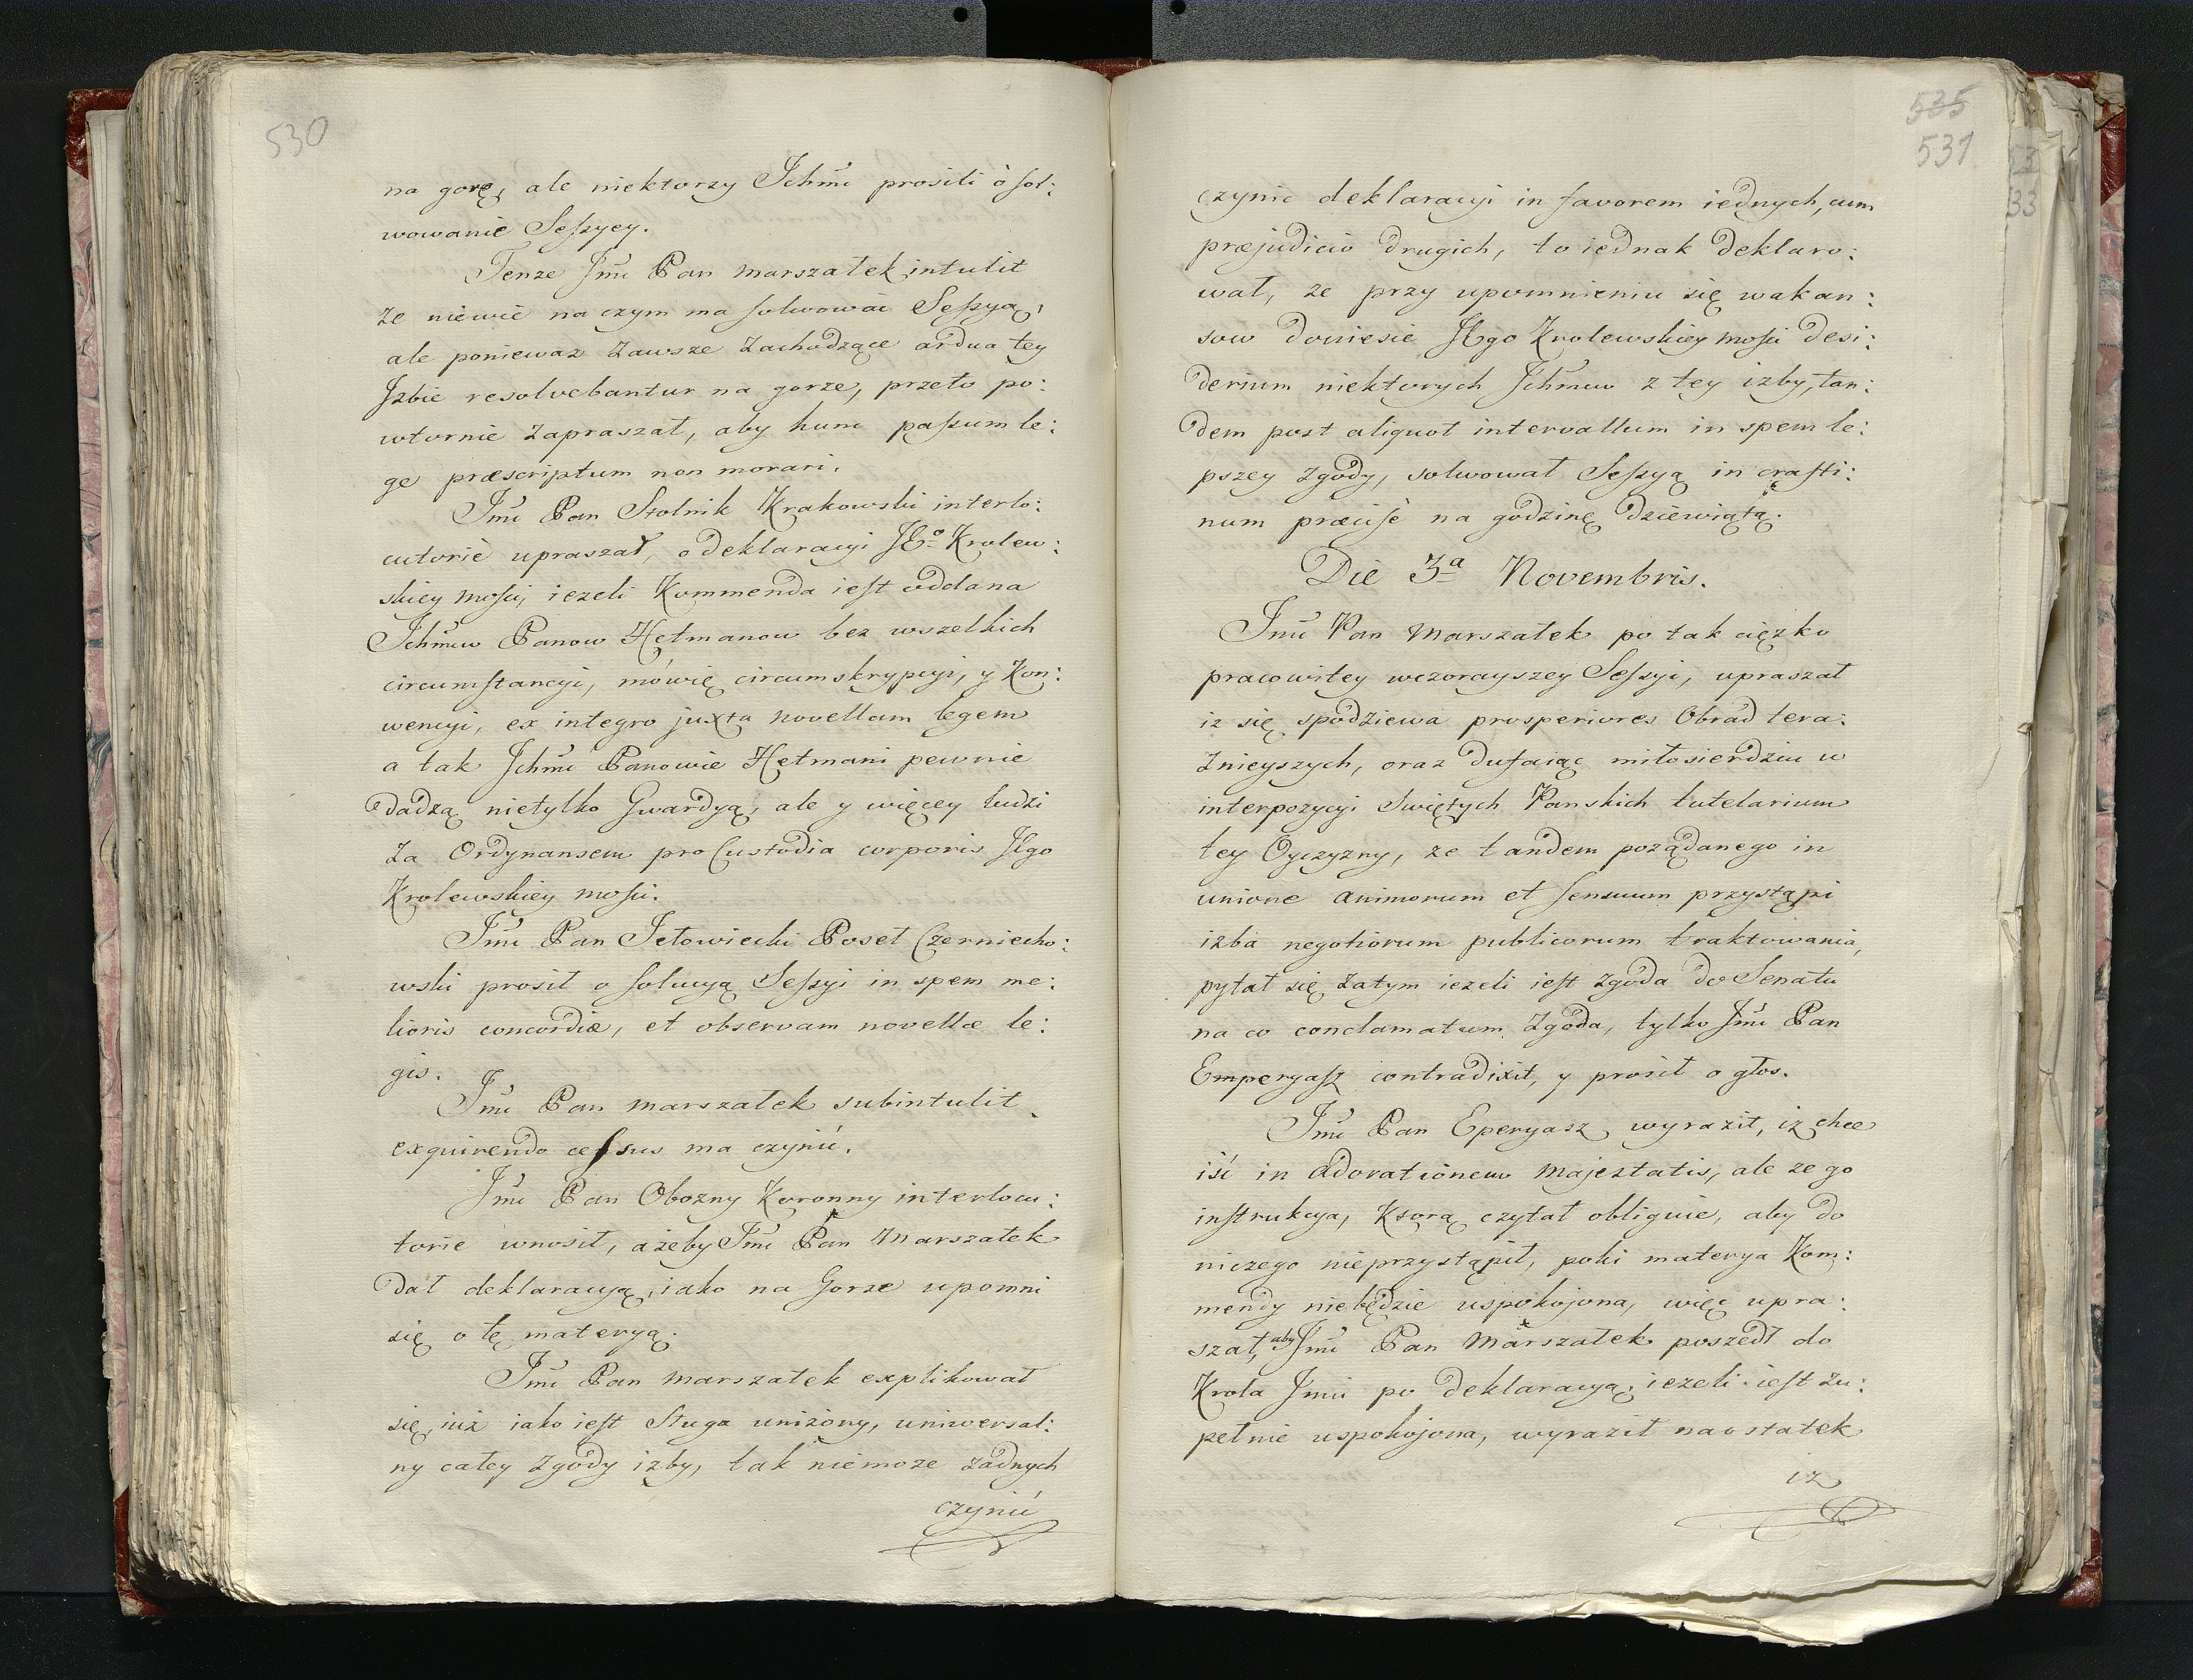 530
na gorę, ale niektorzy Ichmć prosili ò sol:
wowanie Sessyey.
Tenze Jmć Pan Marszałek intulit
że niewie na czym ma solwować Sessyą,
ale poniewaz zawsze zachodzące ardua tey
Jzbie resolvebantur na gorze, przeto po:
wtornie zapraszał, aby hunc passum le:
ge præscriptum non morari.
Jmć Pan Stolnik Krakowski interlo:
cutorie upraszał, o deklaracyi JEº Krolew:
skiey mosci, iezeli Kommenda iest oddana
Ichmciow Panow Hetmanow bez wszelkich
circumstancyi, mówię circumskrypcyi, y Kon:
wencyi, ex integro juxta novellam legem
a tak Ichmć Panowie Hetmani pewnie
dadzą nietylko Gwardyą, ale y więcey ludzi
za Ordynansem pro Custodia corporis JEgo
Krolewskiey mosci.
Jmć Pan Jełowiecki Poseł Czerniecho:
wski prosił o solucyą Sessyi in spem me:
lioris concordiæ, et observam novellæ le:
gis.
Jmć Pan Marszałek subintulit
exquirendo cessus ma czynić.
Jmć Pan Obozny Koronny interlocu:
torie wnosił, ażeby Jmć Pan Marszałek
dał deklaracyą, iako na Gorze upomni
się o tę materyą.
Jmć Pan Marszałek explikował
się, iuż iako iest Sługa uniżony, uniwersal:
ny całey zgody izby, tak niemoze żadnych
czynić
535
531
czynic deklaracyi in favorem iednych, cum
præjudicio drugich, to iednak deklaro:
wał, ze przy upomnieniu się wakan:
sow doniesie JEgo Krolewskiey mosci desi:
derium niektorych Ichmciow z tey izby, tan:
dem post aliquot intervallum in spem le:
pszey zgody, solwował Sessyą in crasti:
num præcise na godzinę dziewiątą.
Die 3ª Novembris.
Jmć Pan Marszałek po tak ciężko
pracowitey wczorayszey Sessyi, upraszał
iz się spodziewa prosperiores Obrad tera:
znieyszych, oraz dufaiąc miłosierdziu w
interpozycyi Swiętych Panskich tutelarium
tey Oyczyzny, ze tandem pożądanego in
unione animorum et sensuum przystąpi
izba negotiorum publicorum traktowania,
pytał się zatym iezeli iest zgoda do Senatu
na co conclamatum zgoda, tylko Jmć Pan
Emperyasz contradixit, y prosił o głos.
Jmć Pan Eperyasz wyraził, iz chce
iść in adorationem Majestatis, ale ze go
instrukcya, Ksorą czytał obliguie, aby do
niczego nieprzystąpił, poki materya Kom:
mendy niebędzie uspokojona, więc upra:
szał, aby Jmć Pan Marszałek poszedł do
Krola Jmci po deklaracyą, iezeli iest zu:
pełnie uspokojona, wyraził naostatek
iz
53
33